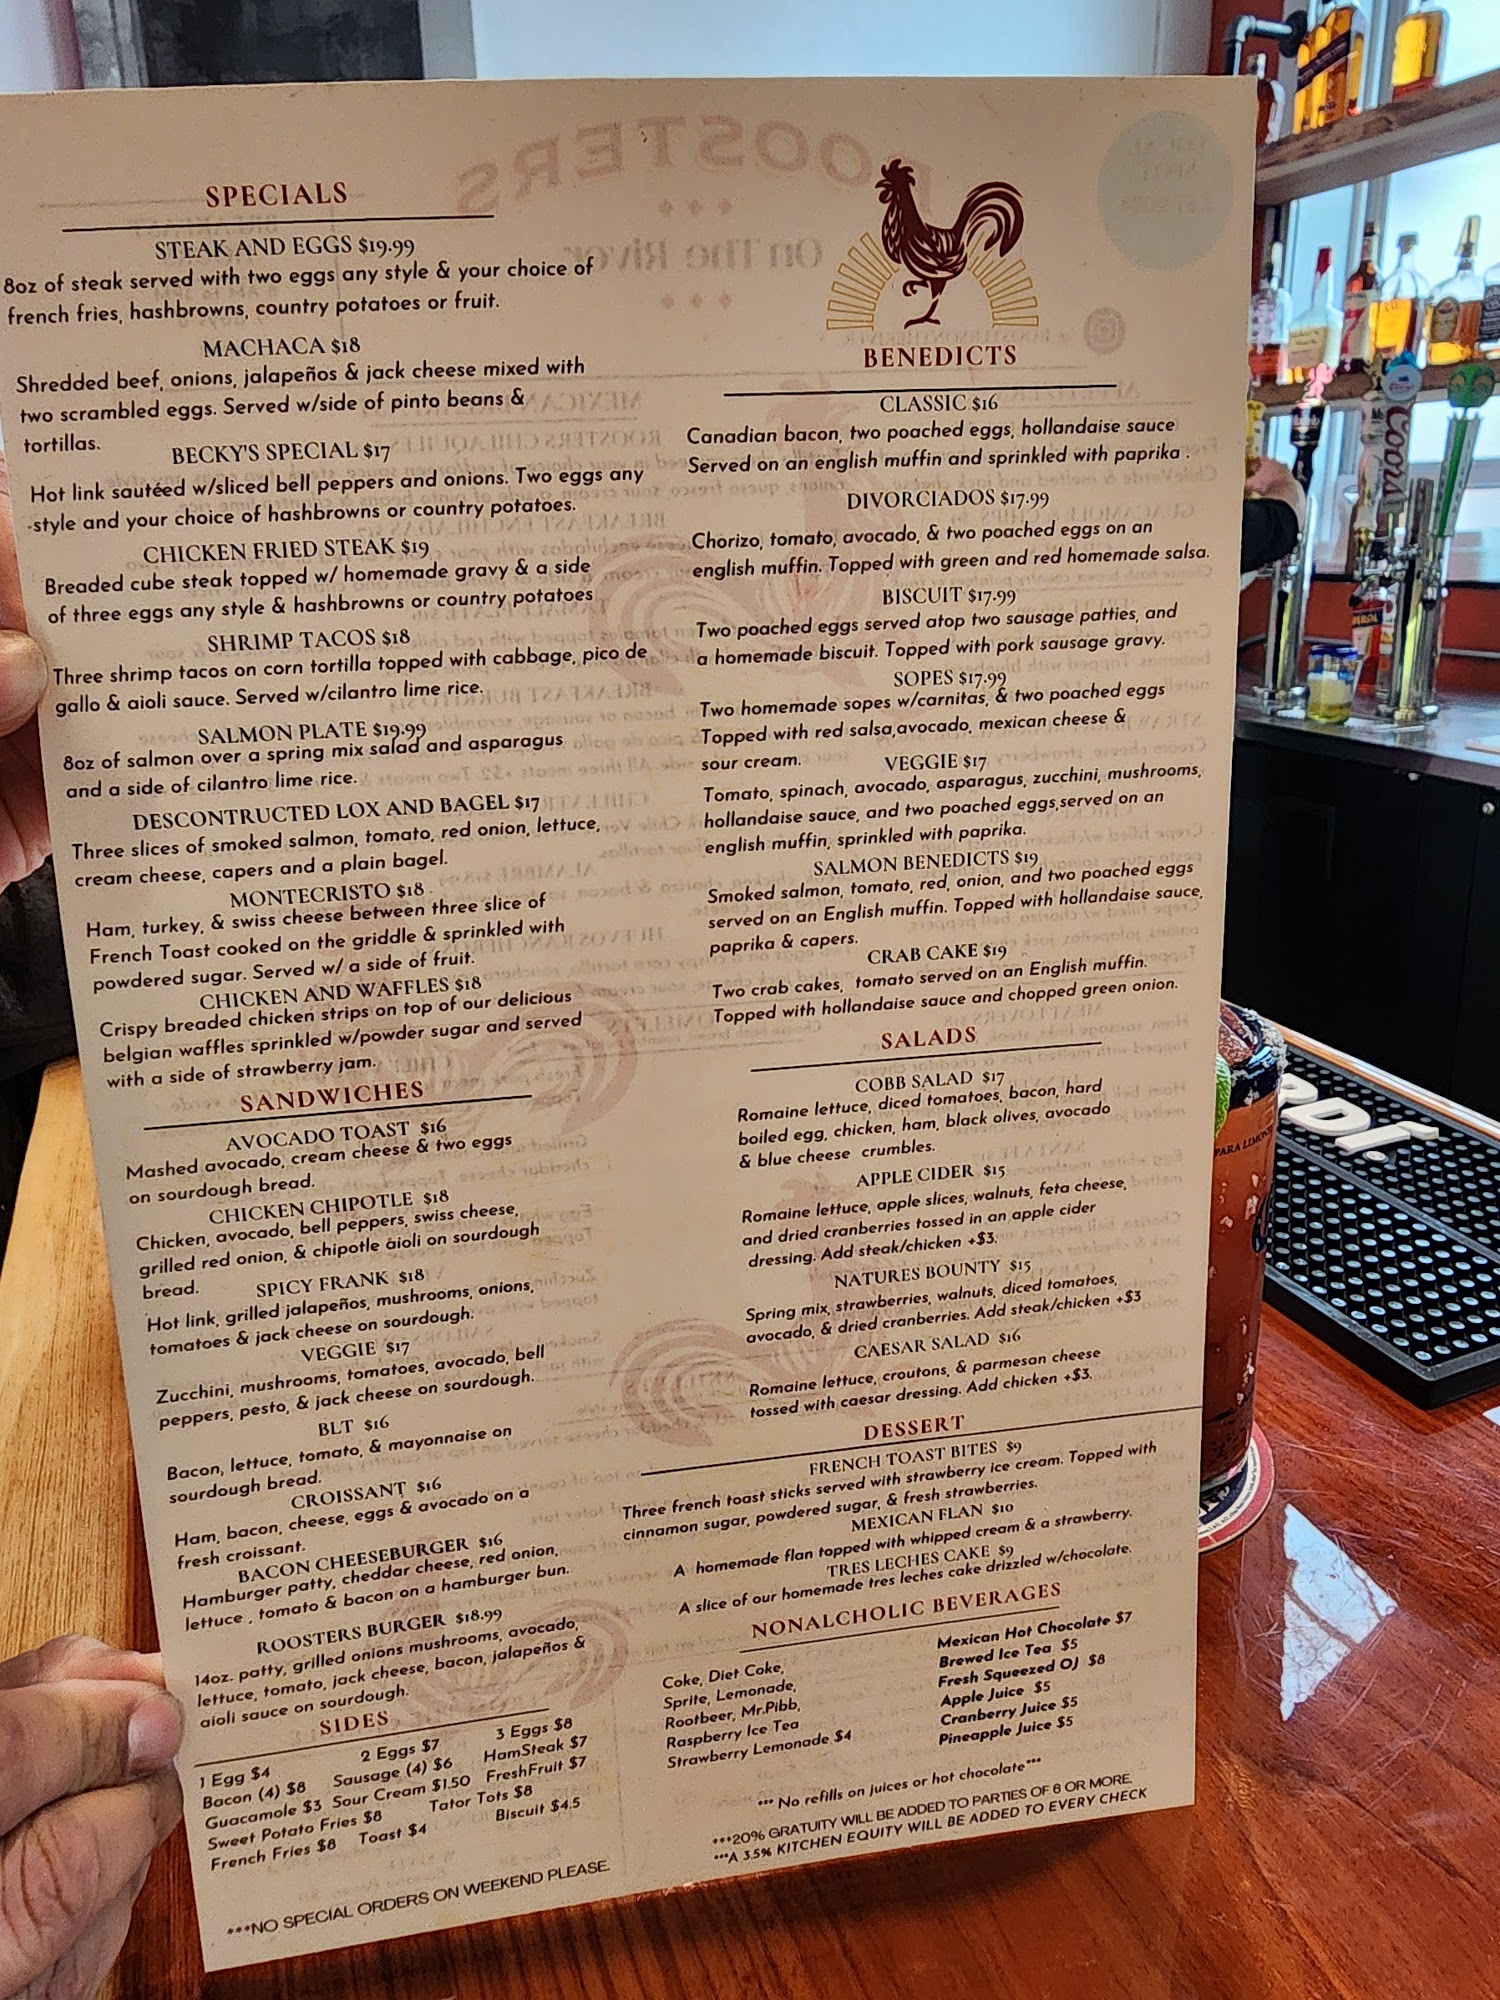 SPECIALS
STEAK AND EGGS $19.99
8oz of steak served with two eggs any style & your choice of
french fries, hashbrowns, country potatoes or fruit.
MACHACA $18
Shredded beef, onions, jalapeños & jack cheese mixed with
two scrambled eggs. Served w/side of pinto beans &
tortillas.
BECKY'S SPECIAL $17
Hot link sautéed w/sliced bell peppers and onions. Two eggs any
-style and your choice of hashbrowns or country potatoes.
CHICKEN FRIED STEAK $19
Breaded cube steak topped w/ homemade gravy & a side
of three eggs any style & hashbrowns or country potatoes
SHRIMP TACOS $18
Three shrimp tacos on corn tortilla topped with cabbage, pico de
gallo & aioli sauce. Served w/cilantro lime rice.
SALMON PLATE $19.99
8oz of salmon over a spring mix salad and asparagus
and a side of cilantro lime rice.
DESCONTRUCTED LOX AND BAGEL $17
Three slices of smoked salmon, tomato, red onion, lettuce,
cream cheese, capers and a plain bagel.
MONTECRISTO $18
Ham, turkey, & swiss cheese between three slice of
French Toast cooked on the griddle & sprinkled with
powdered sugar. Served w/ a side of fruit.
CHICKEN AND WAFFLES $18
Crispy breaded chicken strips on top of our delicious
belgian waffles sprinkled w/powder sugar and served
with a side of strawberry jam.
SANDWICHES
AVOCADO TOAST $16
Mashed avocado, cream cheese & two eggs
on sourdough bread.
CHICKEN CHIPOTLE $18
Chicken, avocado, bell peppers, swiss cheese,
grilled red onion, & chipotle áioli on sourdough
bread.
SPICY FRANK $18
Hot link, grilled jalapeños, mushrooms, onions,
tomatoes & jack cheese on sourdough.
VEGGIE $17
Zucchini, mushrooms, tomatoes, avocado, bell
peppers, pesto, & jack cheese on sourdough.
BLT $16
Bacon, lettuce, tomato, & mayonnaise on
sourdough bread.
CROISSANT $16
Ham, bacon, cheese, eggs & avocado on a
fresh croissant.
BACON CHEESEBURGER $16
Hamburger patty, cheddar cheese, red onion,
lettuce , tomato & bacon on a hamburger bun.
ROOSTERS BURGER $18.99
14oz. patty, grilled onions mushrooms, avocado,
lettuce, tomato, jack cheese, bacon, jalapeños &
aioli sauce on sourdough.
SIDES
1 Egg $4 2 Eggs $7 3 Eggs $8
Bacon (4) $8 Sausage (4) $6 HamSteak $7
Guacamole $3 Sour Cream $1.50 FreshFruit $7
Sweet Potato Fries $8 Tator Tots $8
French Fries $8 Toast $4 Biscuit $4.5
***NO SPECIAL ORDERS ON WEEKEND PLEASE.
BENEDICTS
CLASSIC $16
Canadian bacon, two poached eggs, hollandaise sauce
Served on an english muffin and sprinkled with paprika .
DIVORCIADOS $17.99
Chorizo, tomato, avocado, & two poached eggs on an
english muffin. Topped with green and red homemade salsa.
BISCUIT $17.99
Two poached eggs served atop two sausage patties, and
a homemade biscuit. Topped with pork sausage gravy.
SOPES $17.99
Two homemade sopes w/carnitas, & two poached eggs
Topped with red salsa,avocado, mexican cheese &
sour cream.
VEGGIE $17
Tomato, spinach, avocado, asparagus, zucchini, mushrooms,
hollandaise sauce, and two poached eggs,served on an
english muffin, sprinkled with paprika.
SALMON BENEDICTS $19
Smoked salmon, tomato, red, onion, and two poached eggs
served on an English muffin. Topped with hollandaise sauce,
paprika & capers.
CRAB CAKE $19
Two crab cakes, tomato served on an English muffin.
Topped with hollandaise sauce and chopped green onion.
SALADS
COBB SALAD $17
Romaine lettuce, diced tomatoes, bacon, hard
boiled egg, chicken, ham, black olives, avocado
& blue cheese crumbles.
APPLE CIDER $15
Romaine lettuce, apple slices, walnuts, feta cheese,
and dried cranberries tossed in an apple cider
dressing. Add steak/chicken +$3.
NATURES BOUNTY $15
Spring mix, strawberries, walnuts, diced tomatoes,
avocado, & dried cranberries. Add steak/chicken +$3
CAESAR SALAD $16
Romaine lettuce, croutons, & parmesan cheese
tossed with caesar dressing. Add chicken +$3.
DESSERT
FRENCH TOAST BITES $9
Three french toast sticks served with strawberry ice cream. Topped with
cinnamon sugar, powdered sugar, & fresh strawberries.
MEXICAN FLAN $10
A homemade flan topped with whipped cream & a strawberry.
TRES LECHES CAKE $9
A slice of our homemade tres leches cake drizzled w/chocolate.
NONALCHOLIC BEVERAGES
Coke, Diet Coke,
Sprite, Lemonade,
Rootbeer, Mr.Pibb,
Raspberry Ice Tea
Strawberry Lemonade $4
Mexican Hot Chocolate $7
Brewed Ice Tea $5
Fresh Squeezed OJ $8
Apple Juice $5
Cranberry Juice $5
Pineapple Juice $5
*** No refills on juices or hot chocolate***
***20% GRATUITY WILL BE ADDED TO PARTIES OF 6 OR MORE.
***A 3.5% KITCHEN EQUITY WILL BE ADDED TO EVERY CHECK
ROOSTERS
On The River
Coors
PARA LIMON